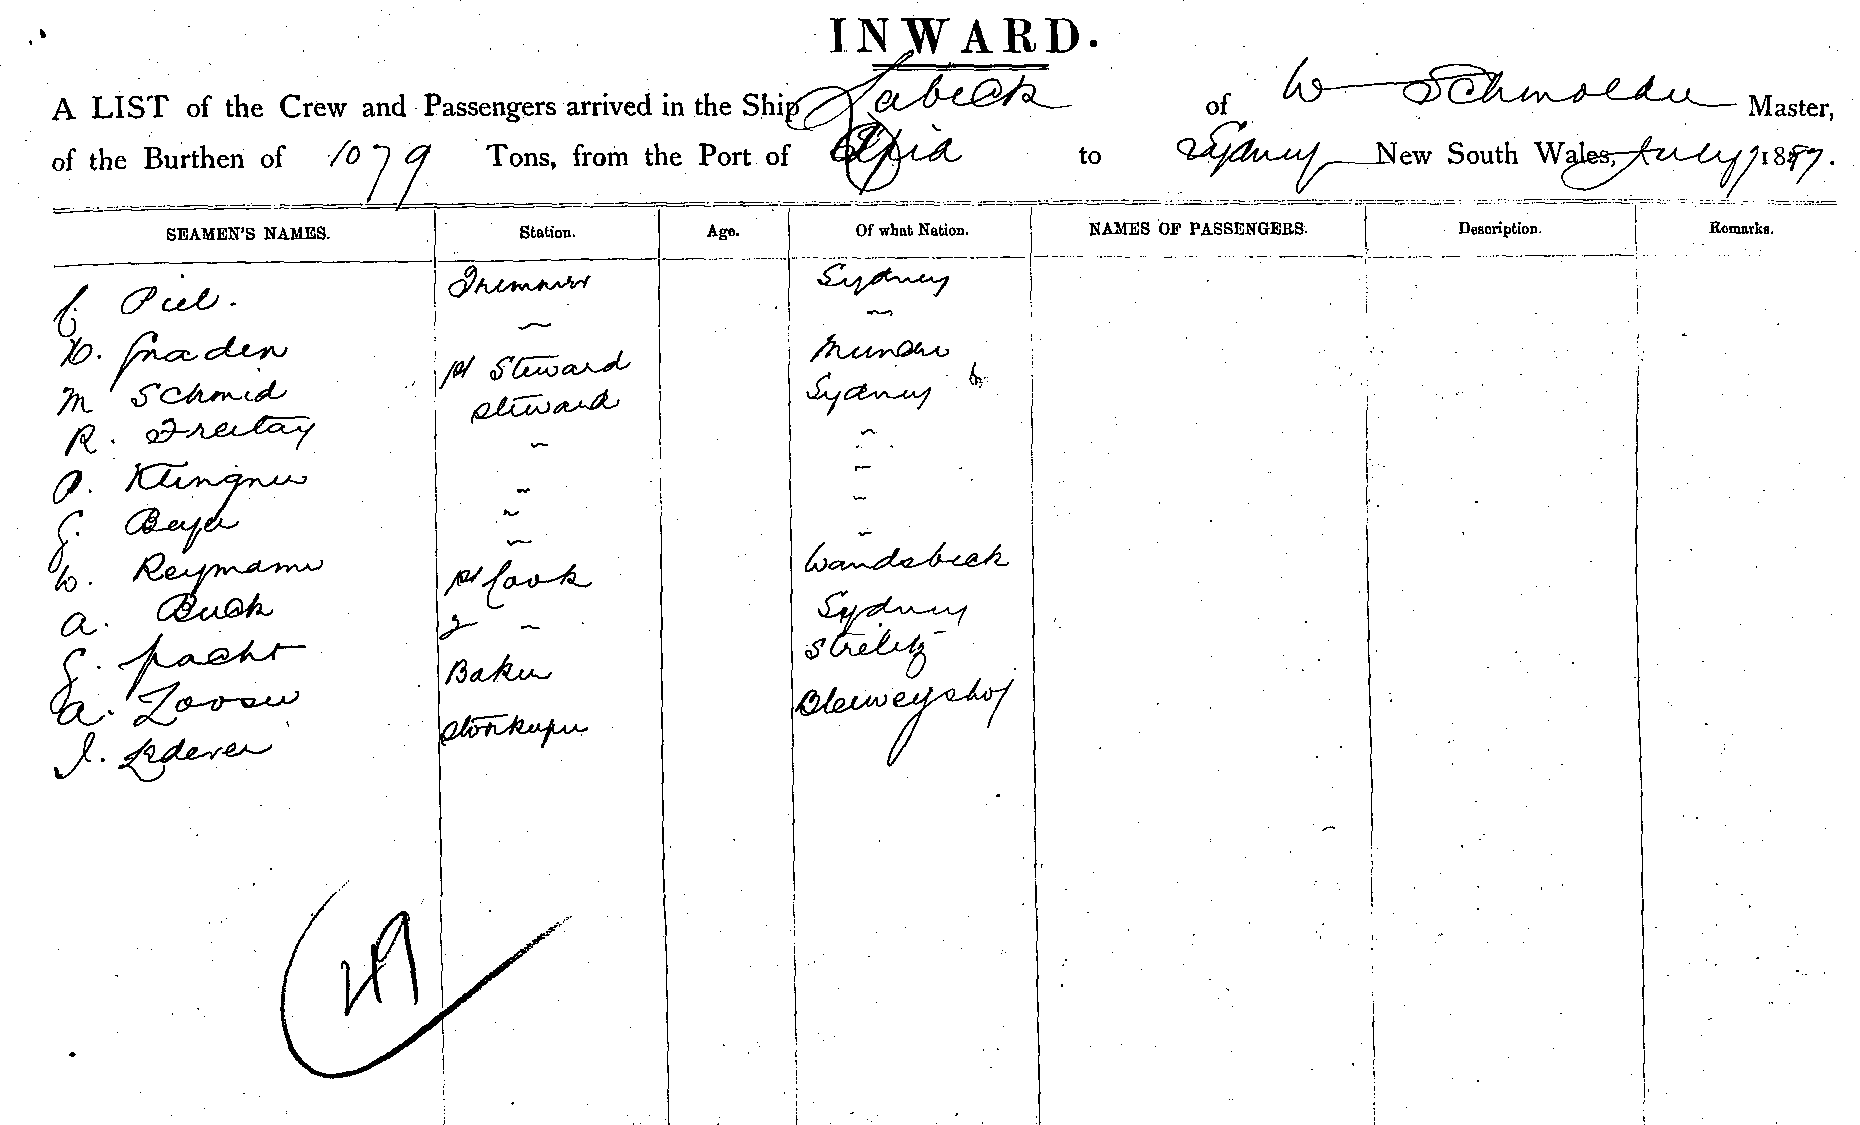 INWARD.
A LIST of the Crew and Passengers arrived in the Ship Lubeck of W Schmolder Master,
of the Burthen of 1079 Tons, from the Port of Apia to Sydney New South Wales, July 1887.
SEAMEN'S NAMES. Station. Age. Of what Nation. NAMES OF PASSENGERS. Description. Remarks.
C. Piel. Trimmer Sydney
Gnaden " "
M Schmid 1st Steward Munden
R. Freitag Steward Sydney
P. Klingner " "
G. Beyer " "
W. Reymann " "
A. Buck 1st Cook Wandsbeck
G. Pacht 2 " Sydney
A. Looser Baker Strelitz
J. Storkeeper
49